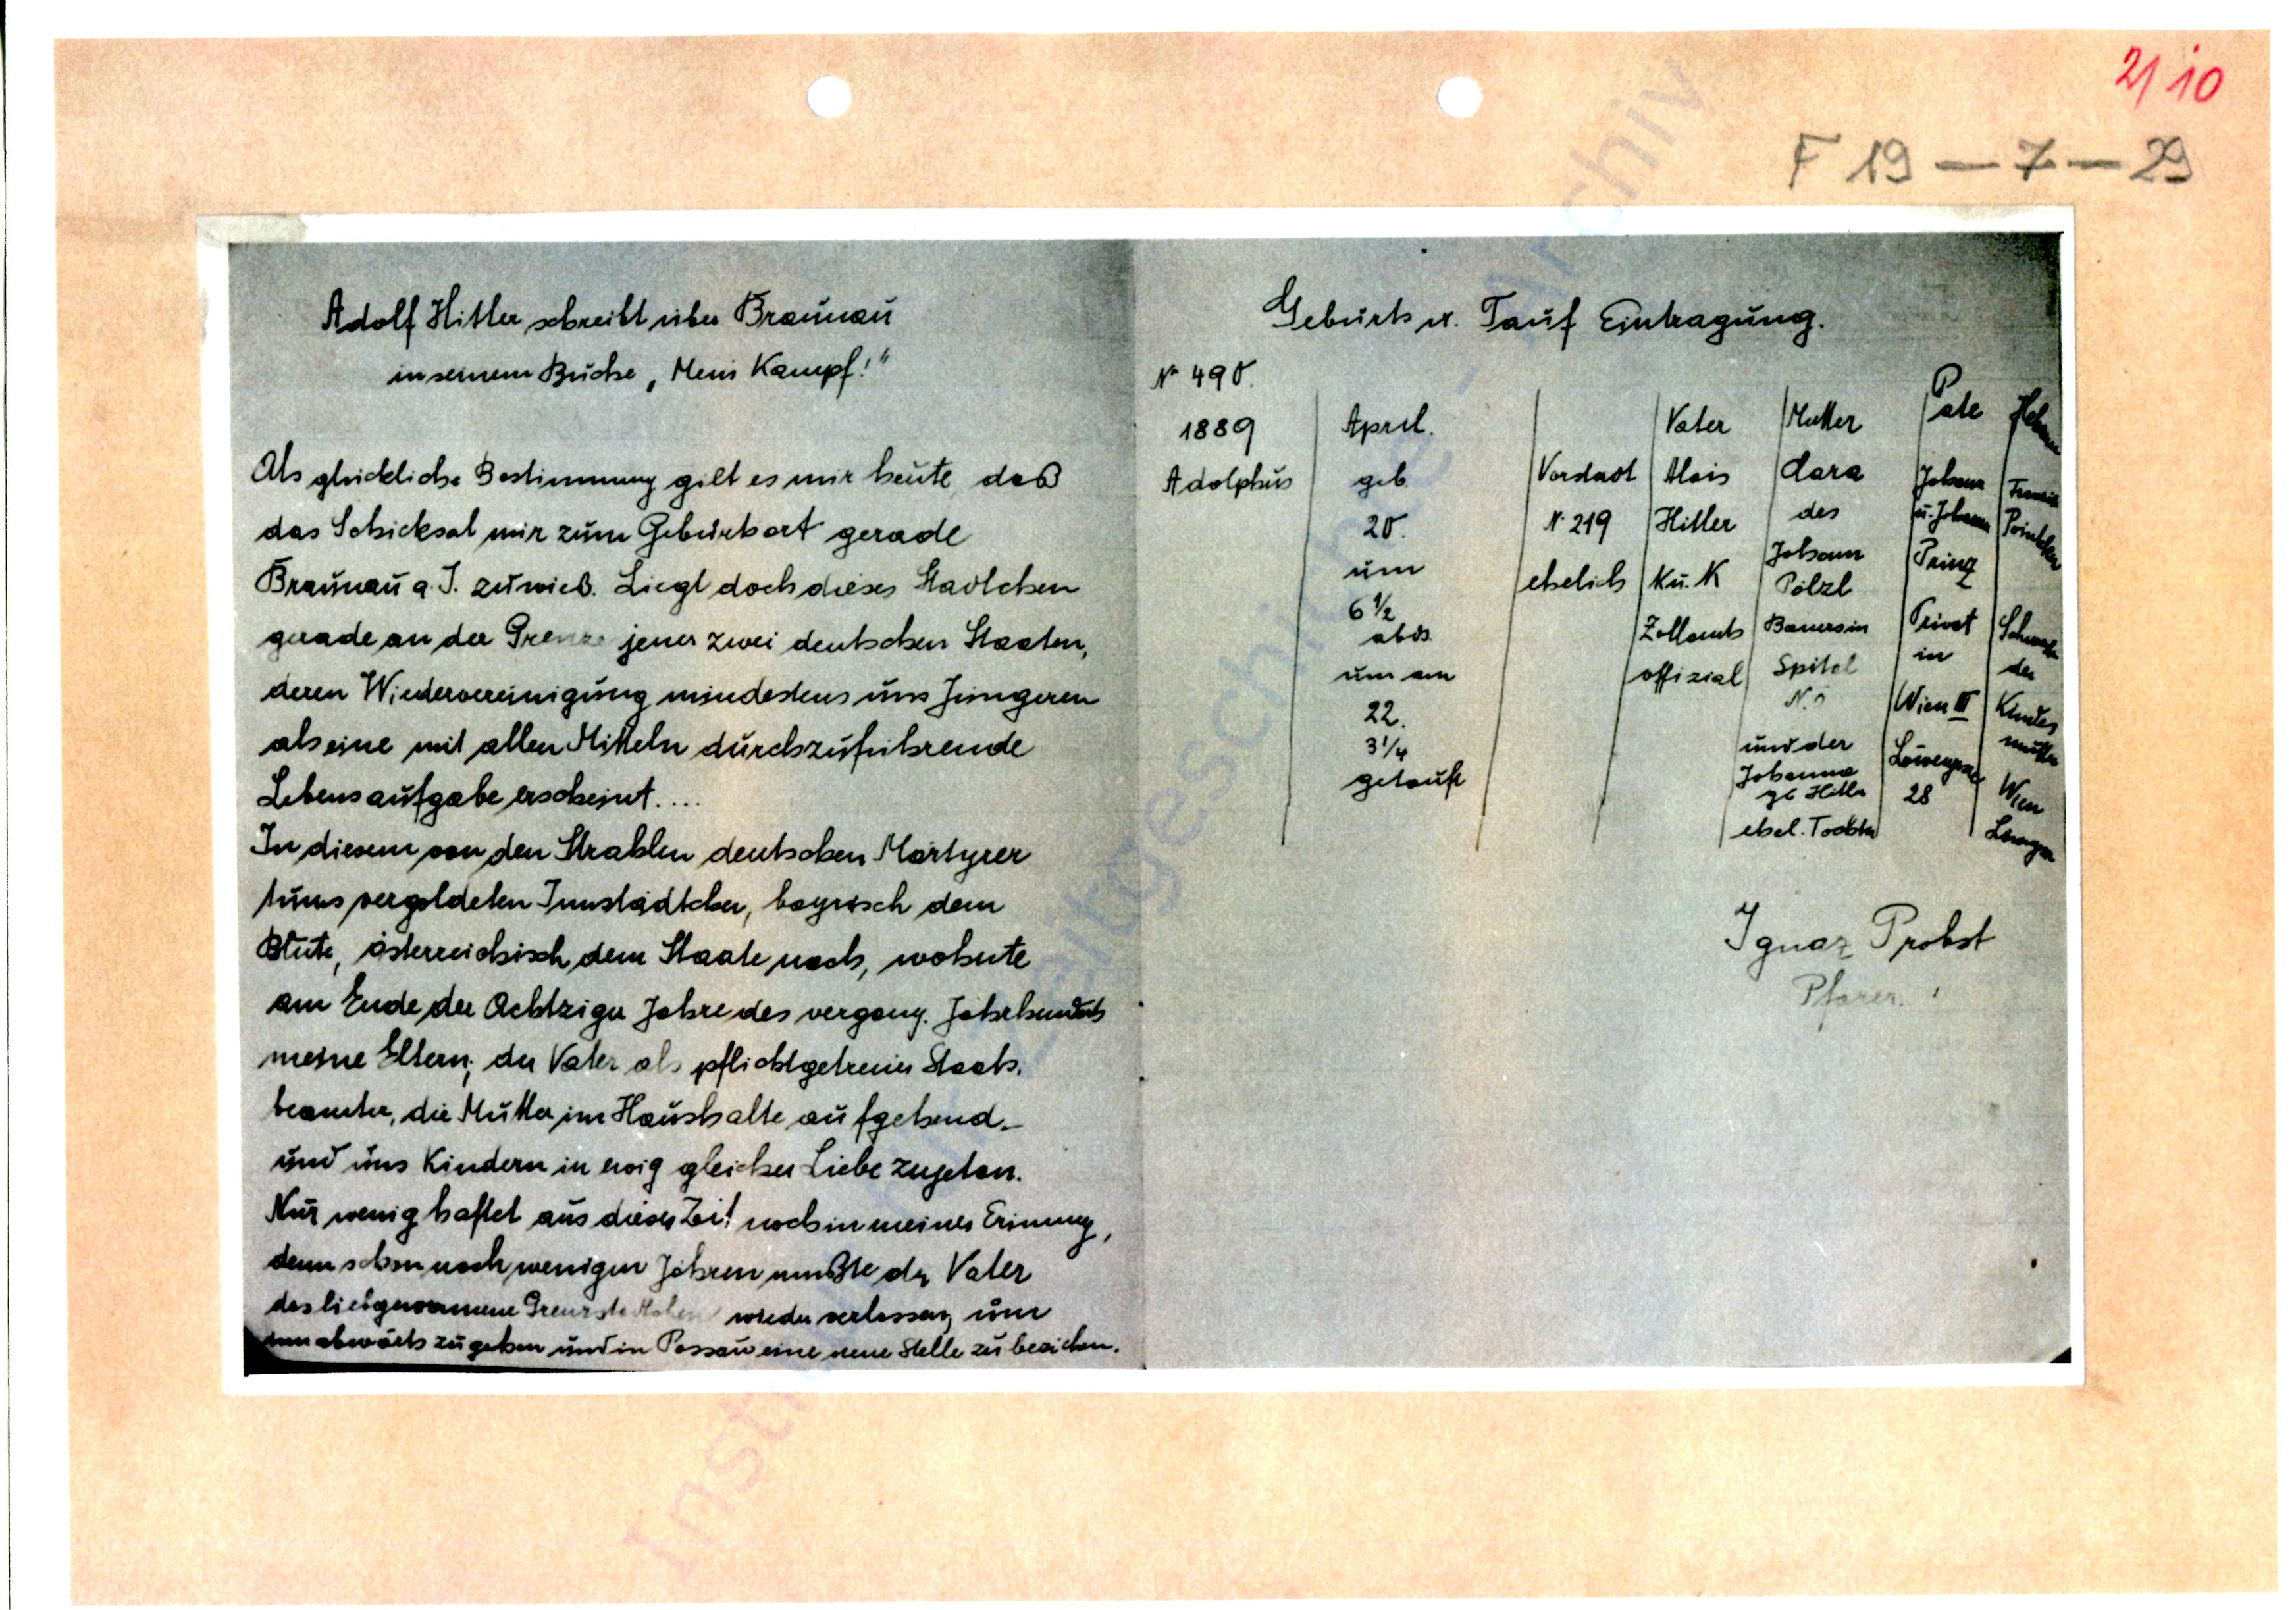 2/10
F 19 — 7 — 29
Adolf Hitler schreibt über Braunau
in seinem Buche „Mein Kampf!"
Als glückliche Bestimmung gilt es mir heute, daß
das Schicksal mir zum Geburtsort gerade
Braunau a. I. zuwieß. Liegt doch dieses Städtchen
gerade an der Grenze jener zwei deutschen Staaten,
deren Wiedervereinigung mindestens uns Jüngeren
als eine mit allen Mitteln durchzuführende
Lebensaufgabe erscheint....
In diesem von den Strahlen deutschen Märtyrer
tums vergoldeten Innstädtchen, bayrisch dem
Blute, österreichisch dem Staate nach, wohnte
am Ende der Achtziger Jahre des vergang. Jahrhunderts
meine Eltern; der Vater als pflichtgetreuer Staats.
beamter, die Mutter im Haushalte aufgehend_
und uns Kindern in ewig gleicher Liebe zugetan.
Nur wenig haftet aus dieser Zeit noch in meiner Erinnung,
denn schon nach wenigen Jahren mußte der Vater
das liebgewonnene Grenzstädtchen wieder verlassen, um
innabwärts zu gehen und in Passau eine neue Stelle zu beziehen.
Geburts u. Tauf Eintragung.
No 490.
1889 April. Vater Mutter Pate
Adolphus geb Vorstadt Alois Clara Johann
20. N. 219 Hitler des u. Johanna
um ehelich K u. K Johann Prinz
6 1/2 Zollamts Pölzl Privat
abds offizial Bauers in in
um am Spital Wien III
22. N.Ö Löwengasse
3 1/4 und der 28
getauft Johanna
gb Hitler
ehel. Tochter
Schwester
der
Kindes
mutter
Wien
Ignaz Probst
Pfarer.
Institut für Zeitgeschichte - Archiv